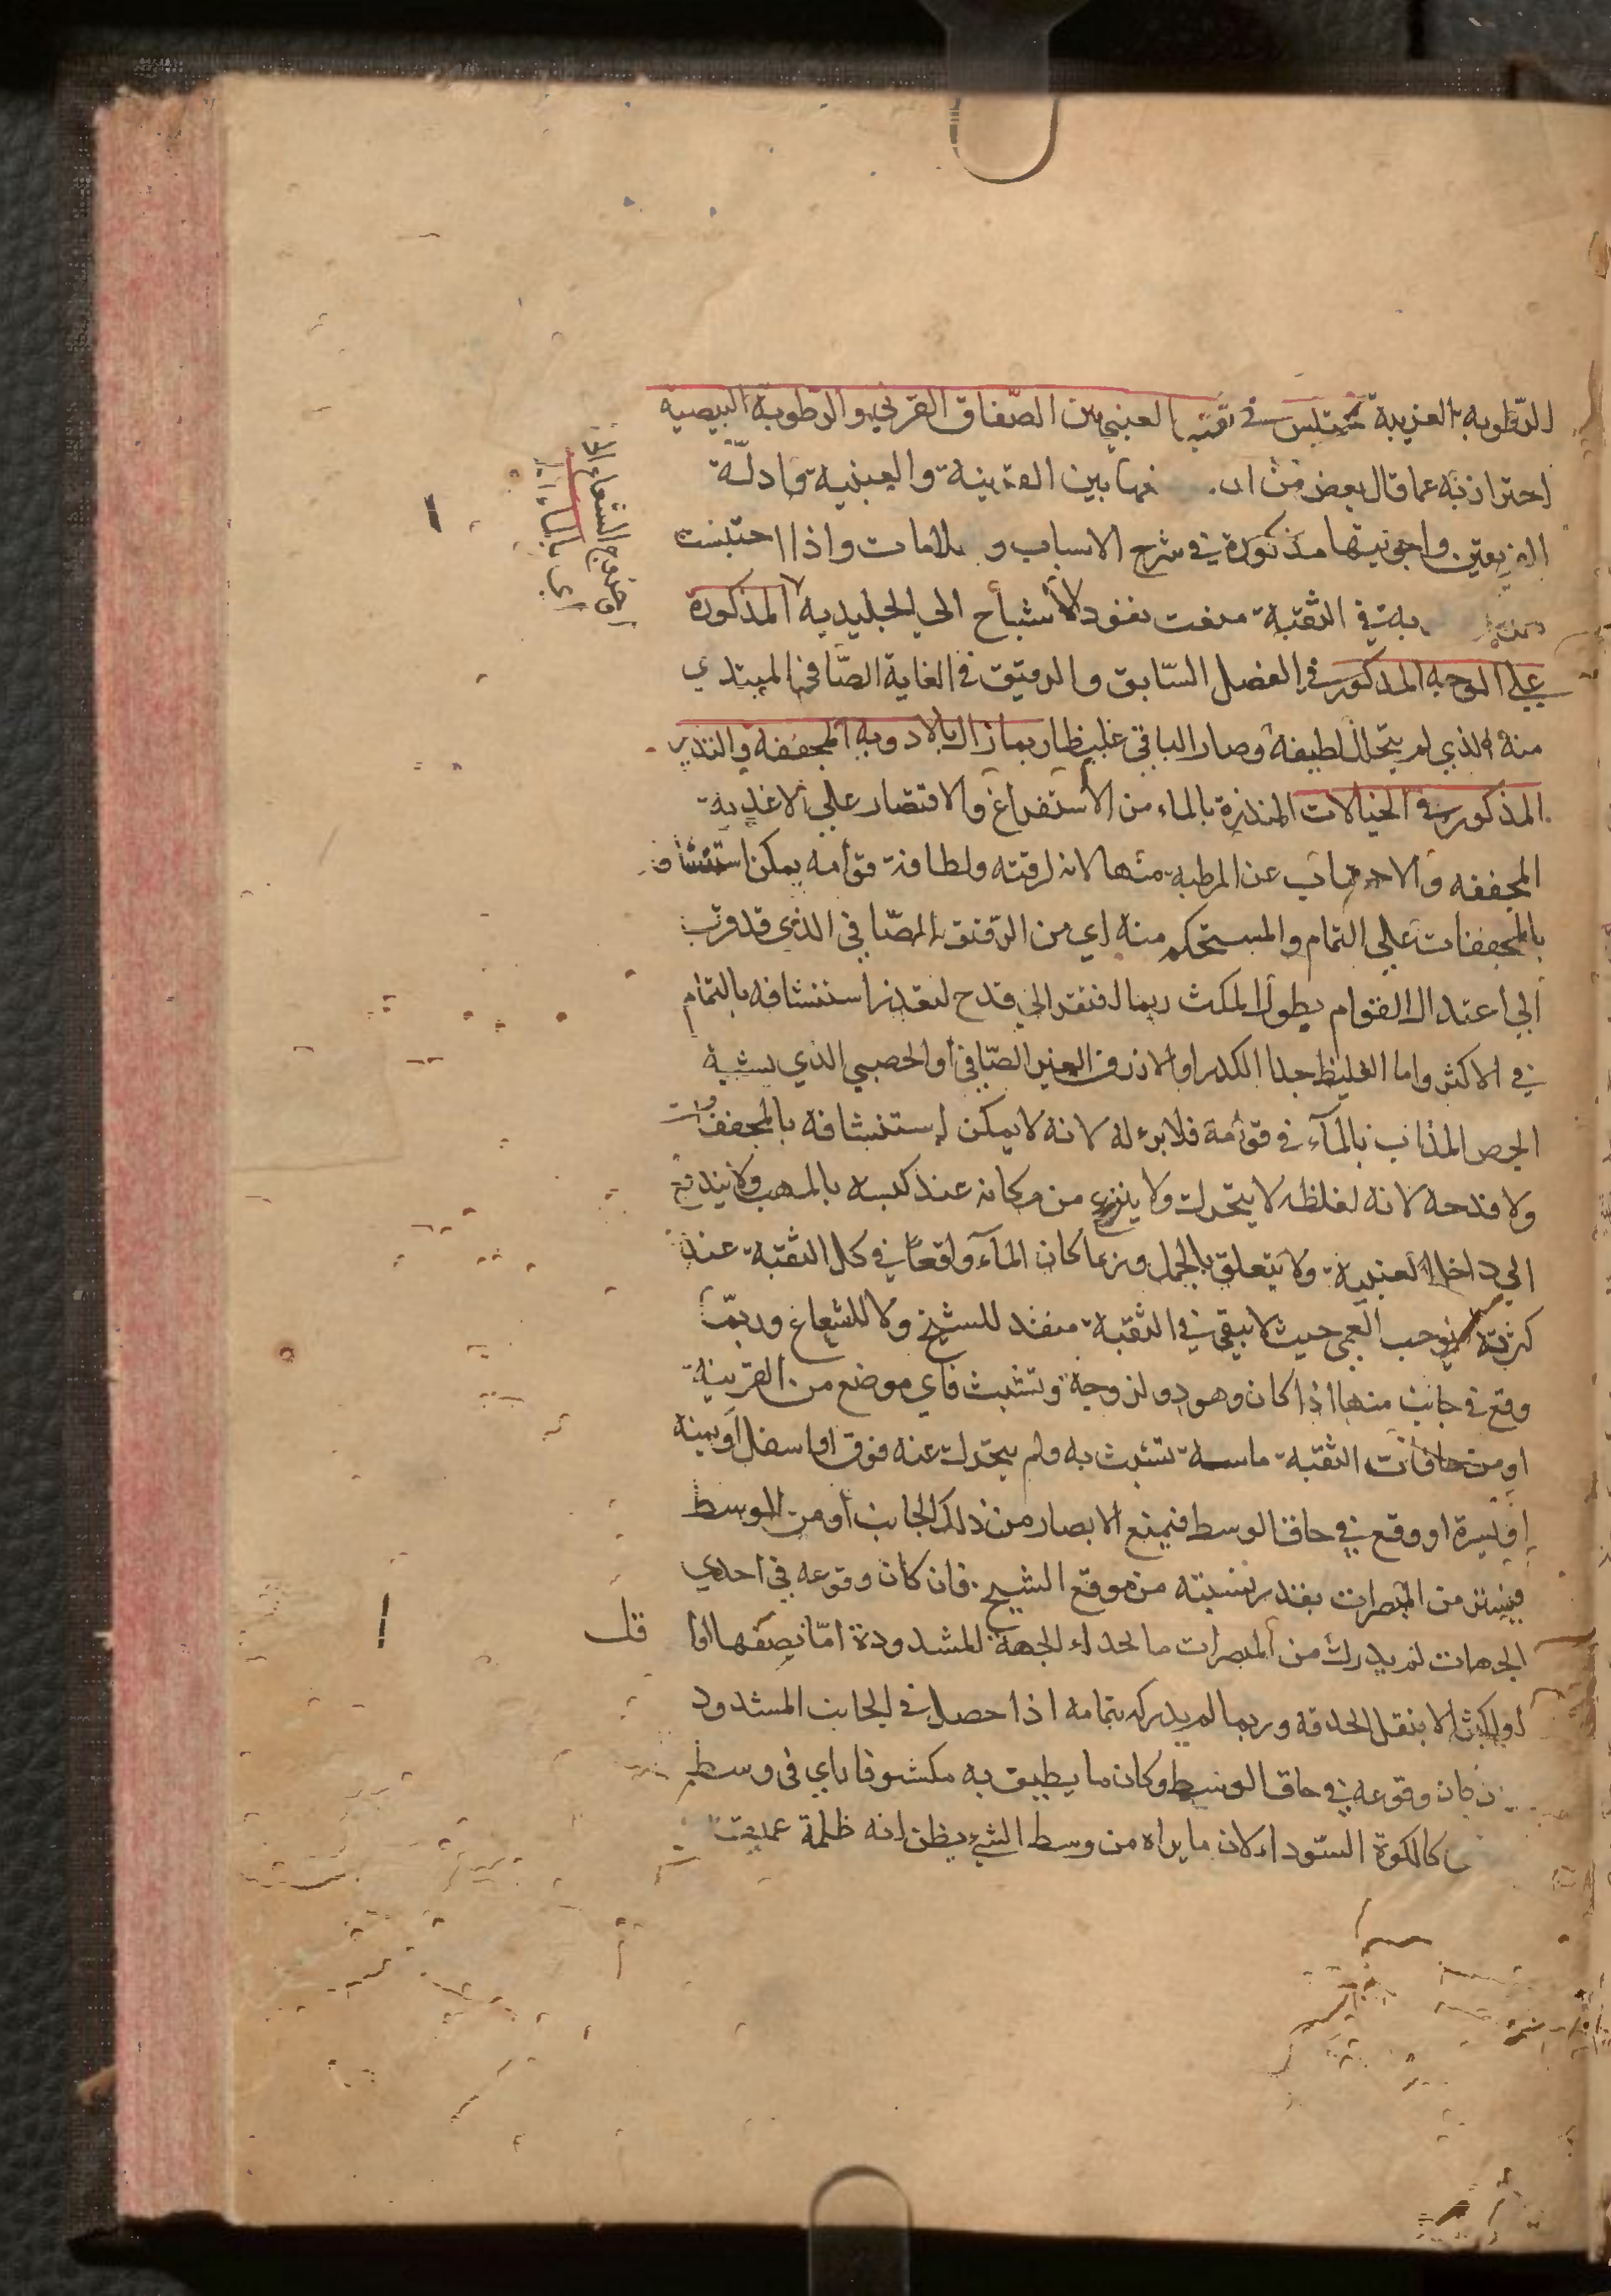 الرطوبة الغريبة تحتبس في ثقبه العنبي بين الصفاق القرني والرطوبة البيضية
احترازية عما قال بعض من ان فيما بين القرنية والعنبية وادلة
الفريقين واجوبتها مذكورة في شرح الاسباب و علامات واذا احتبست
بة في الثقبة منعت نفوذ الاشباح الي الجليدية المذكورة
علي الوجه المذكور في الفصل السابق والرقيق في الغاية الصافي المبتدي
منه الذي لم يتحلل لطيفه وصار الباقي غليظا ربما زال بالادوية المجففة والتدبير
المذكور في الخيالات المنذرة بالماء من الاستفراغ والاقتصار علي الاغذية
المجففه والاجتناب عن المرطبه منها لانه لرقته ولطافة قوامه يمكن استنشاف
بالمجففات علي التمام والمستحكم منه اي من الرقيق الصافي الذي قد قرب
الي اعتدال القوام بطول المكث ربما افتقر الي قدح لتعذر استنشافه بالتمام
في الاكثر واما الغليظ جدا الكدر او الازرق الغير الصافي او الجصي الذي يشبه
الجص المذاب بالماء في قوامه فلا برء له لانه لا يمكن استنشافه بالمجففات
ولا قدحه لانه لغلظه لا يتحرك ولا ينزع من مكانه عند كبسه بالمهت ولا يندفع
الي داخل العنبية ولا يتعلق بالخمل وربما كان الماء واقعا في كل الثقبة عند
كثرته فيوجب العمي حيث لا يبقي في الثقبة منفذ للشبح ولا للشعاع وربما
وقع في جانب منها اذا كان وهو ذو لزوجة وتشبث فاي موضع من القرنية
او من حافات الثقبة ماسه تشبث به ولم يتحرك عنه فوق او اسفل او يمينه
او يسرة او وقع في حاق الوسط فيمنع الابصار من ذلك الجانب او من الوسط
فيستر من المبصرات بقدر نسبته من موقع الشبح فان كان وقوعه في احدي
الجهات لم يدرك من المبصرات ما بحذاء الجهة المشدودة اما نصفها او اقل
او اكثر الا بنقل الحدقة وربما لم يدركه بتمامه اذا حصل في الجانب المشدود
ن كان وقوعه في حاق الوسط وكان ما يطيف به مكشوفا راي في وسط
كالكوة السوداء لان ما يراه من وسط الشيء يظن انه ظلمة عميقة
وخروج الشعاع